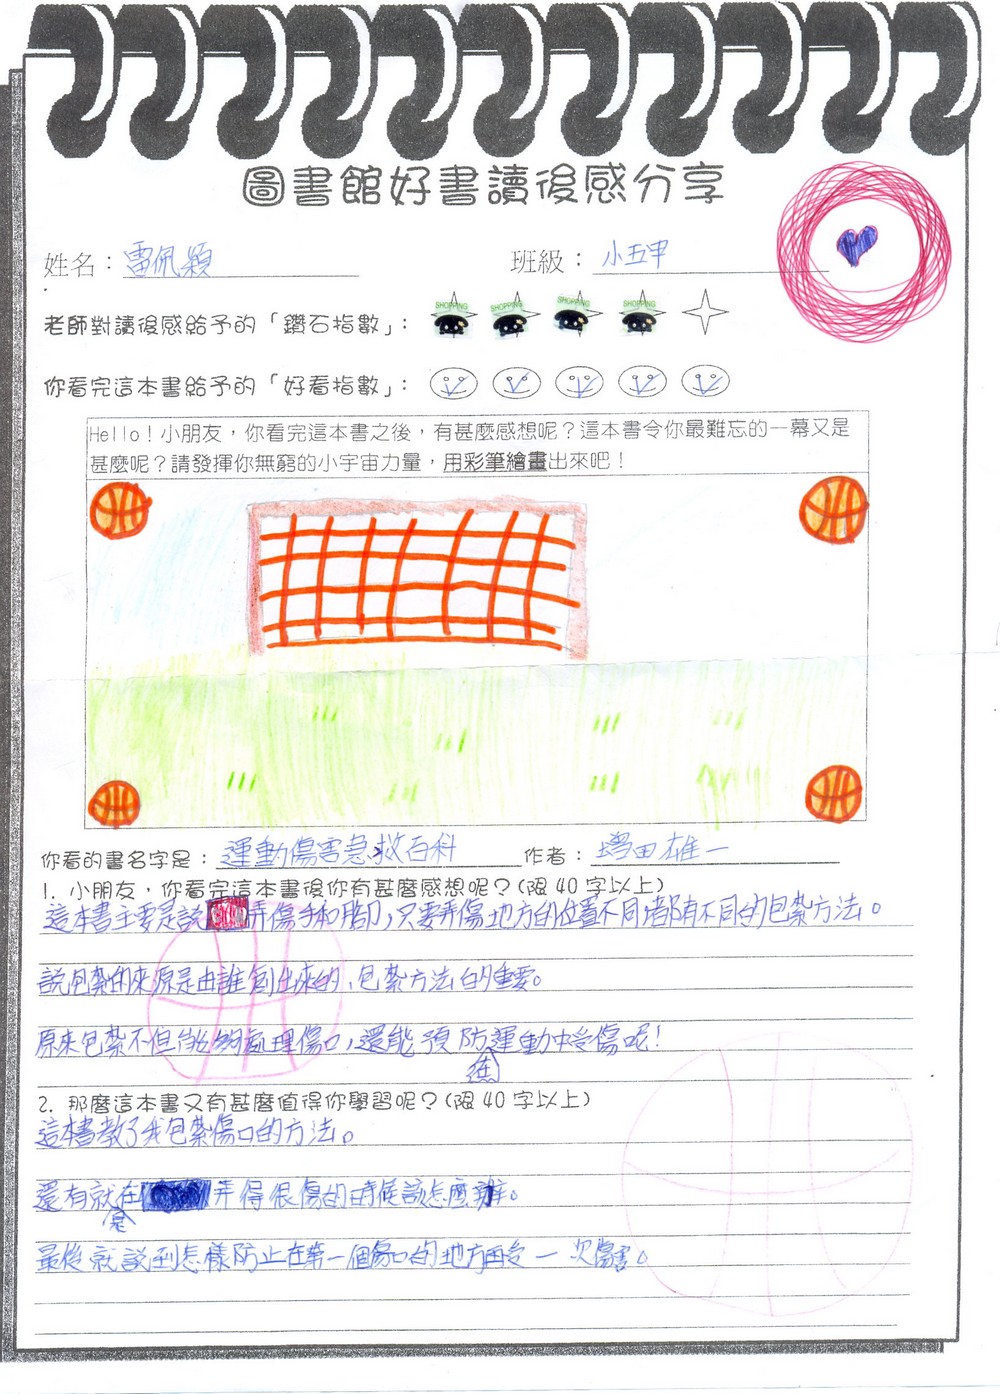 圖書館好書讀後感分享
姓名：雷佩穎 班級：小五甲
老師對讀後感給予的「鑽石指數」：
SHOPPING SHOPPING SHOPPING SHOPPING
你看完這本書給予的「好看指數」：
Hello！小朋友，你看完這本書之後，有甚麼感想呢？這本書令你最難忘的一幕又是
甚麼呢？請發揮你無窮的小宇宙力量，用彩筆繪畫出來吧！
你看的書名字是：運動傷害急救百科 作者：增田雄一
1. 小朋友，你看完這本書後你有甚麼感想呢？(限40字以上)
這本書主要是説弄傷手和腳，只要弄傷地方的位置不同，都有不同的包紮方法。
説包紮的來源是由誰創出來的、包紮方法的重要。
原來包紮不但能夠處理傷口，還能預防運動中受傷呢！
在
2. 那麼這本書又有甚麼值得你學習呢？(限40字以上)
這本書教了我包紮傷口的方法。
還有就在弄得很傷的時候該怎麼辦。
是
最後就説到怎樣防止在第一個傷口的地方再受一次傷害。